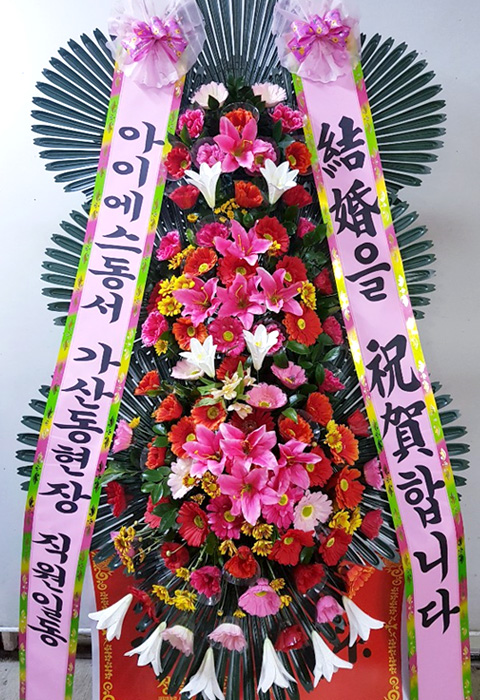 아이에스동서 가산동현장 직원일동
結婚을 祝賀합니다